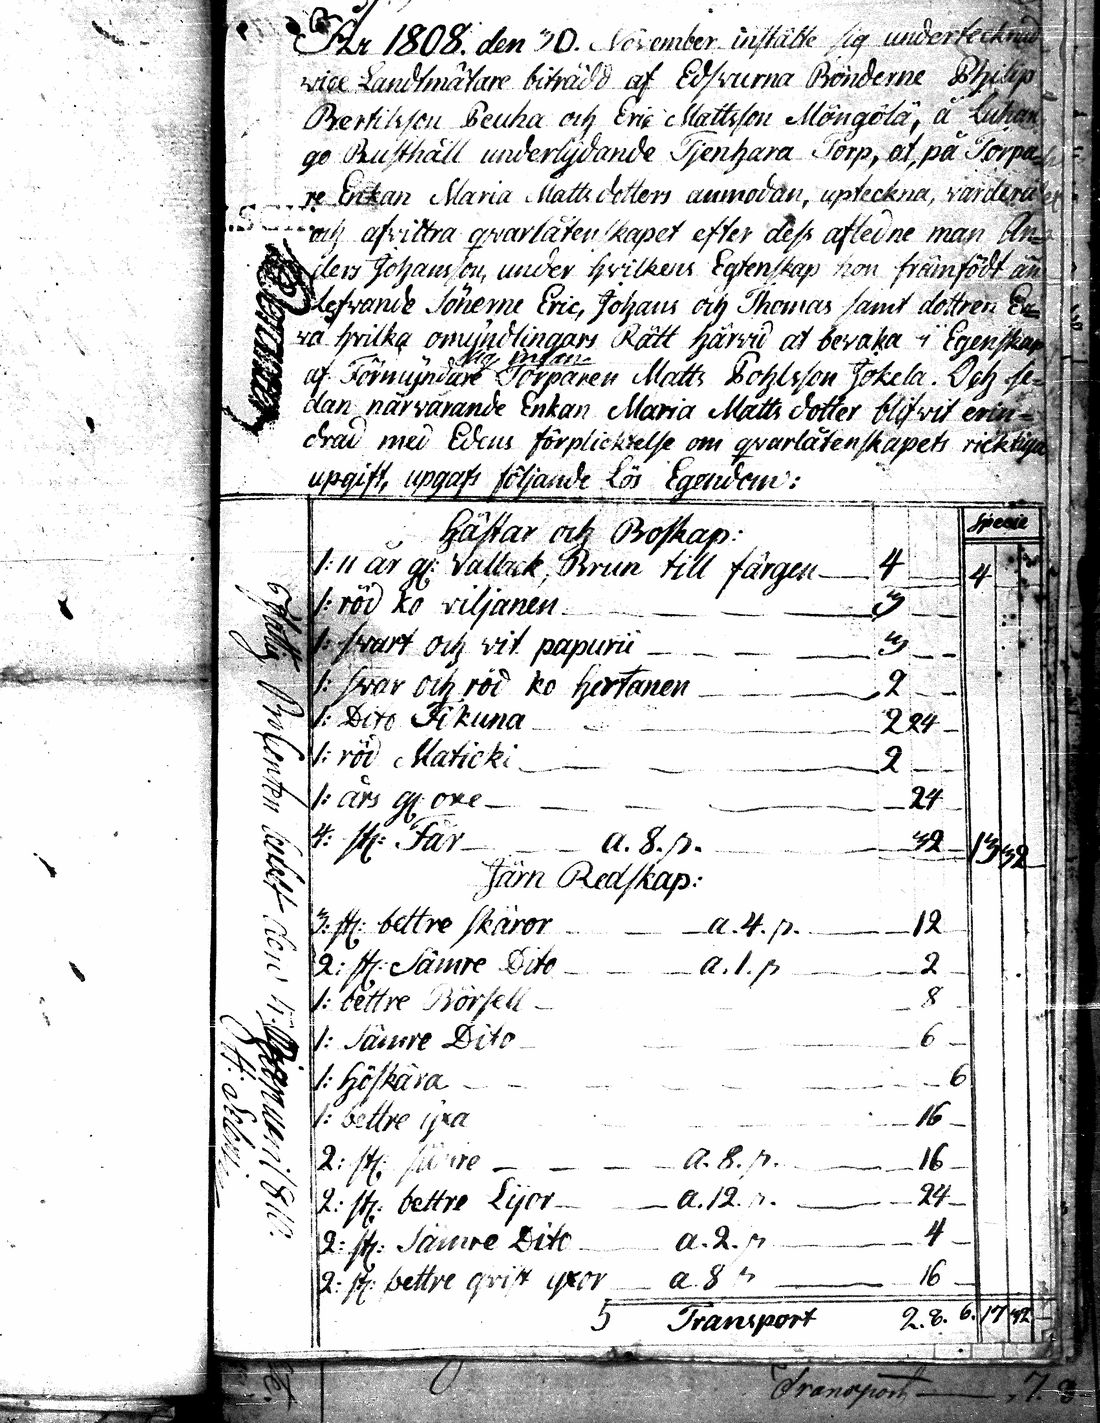 År 1808. den 30. November instälte sig undertecknad
vice Landtmätare biträdd af Edsvurna Bönderne Philip
Bertilsson Peuha och Eric Mattsson Möngölä, å Luhan
go Rusthåll underlydande Tjenhara Torp, at på Torpa-
re Enkan Maria Matts dotters anmodan, upteckna, värdera
och afvittra qvarlåtenskapet efter dess afledne man An-
ders Johansson, under hvilkens Egtenskap hon framfödt än
lefvande Sönerne Eric, Johans och Thomas samt dottren E-
va hvilka omyndlingars Rätt härvid at bevaka i Egenskap
af Förmyndare Torparen Matts Pohlsson Jokela. Och se-
dan närvarande Enkan Maria Matts dotter blifvit erin-
drad med Edens förplicktelse om qvarlåtenskapets ricktiga
upgift, upgafs följande Lös Egendom:
Specie
Hästar och Boskap:
1: 11 år gl: Vallack, Brun till färgen 4 4
1: röd ko viljanen 3
1: svart och vit papurii 3
1: svar och röd ko hertanen 2
1: Dito Fikuna 2 24
1: röd Maticki 2
1: års gl: oxe 24
4: st: Får a. 8. p. 32 13 32
Järn Redskap:
3: st: bettre skäror a. 4. p. 12
2: st: Sämre Dito a. 1. p 2
1: bettre Börsell 8
1: Sämre Dito 6
1: höskära 6
1: bettre yxa 16
2: st: sämre a. 8. p. 16
2: st: bettre Lijor a. 12. p. 24
2: st: Sämre Dito a. 2. p 4
2: st: bettre qvist yxor a 8 p 16
5 Transport 2. 8. 6. 17 32
Transport 7. 3